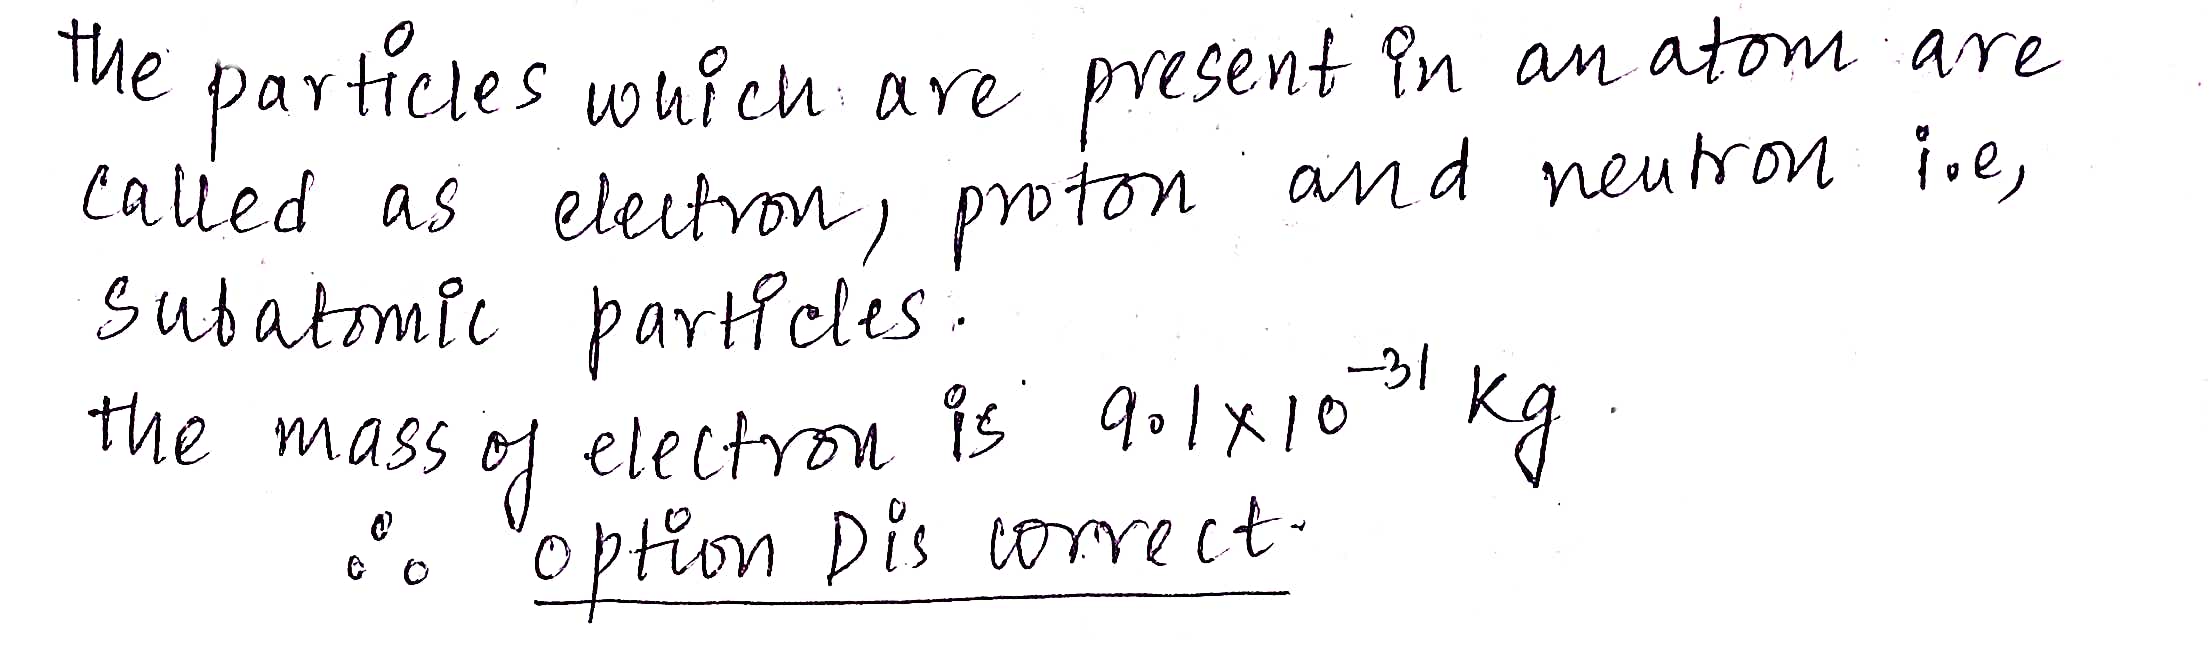 the particles which are present in an atom are
called as electron, proton and neutron i.e,
subatomic particles.
the mass of electron is 9.1×10⁻³¹ kg.
∴ option D is correct.